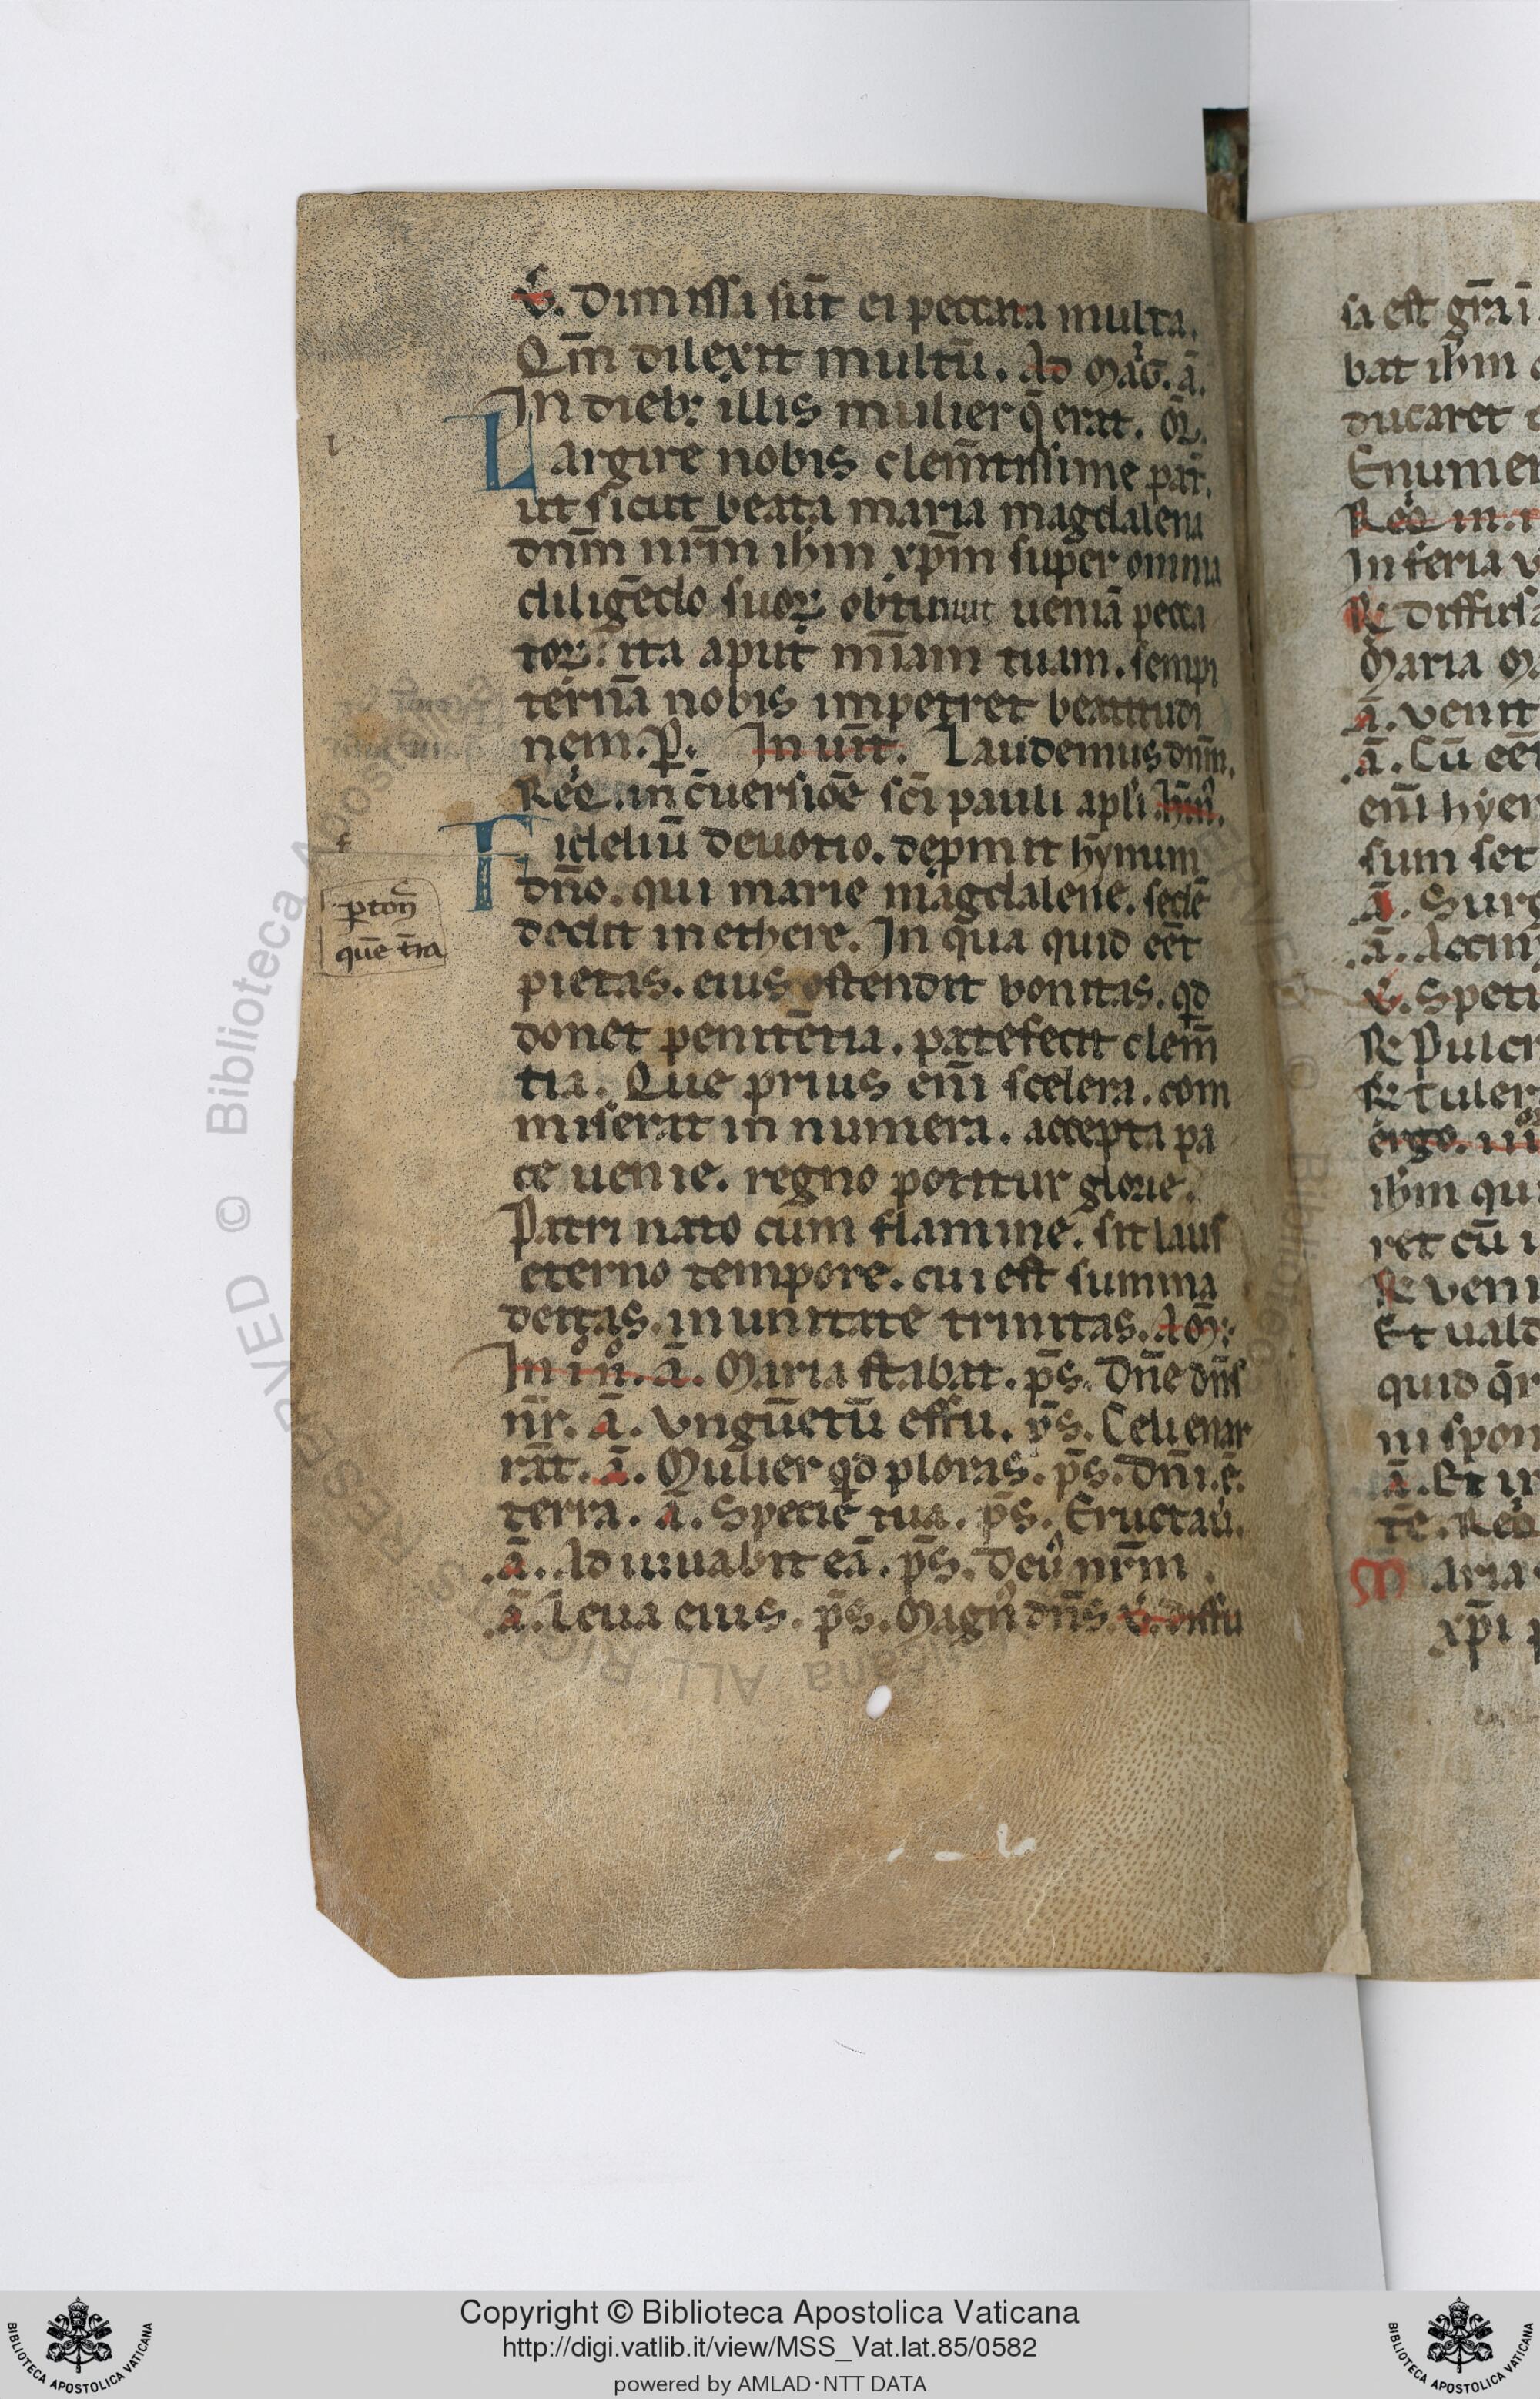 ℣. Dimissa sūt ei peccata multa.
Qm̄ dilexit multū. Ad Mag̃. ā.
In dieb; illis mulier q̄ erat. oꝝ̄.
Largire nobis clem̄tissime pat̄.
ut sicut beata maria magdalena
dnm̄ nrm̄ ihm xp̄m super omnia
diligēdo suoꝝ obtinuit ueniā pecca
toꝝ: ita aput mīam tuam. sempi
ternā nobis impetret beatitudi
nem. P. In uīt. Laudemus dnm̄.
Req̄. in c̄uersiōe sc̄i pauli apl̄i. hm̄n̄.
Fideliū deuotio. depmit hymnum
dn̄o. qui marie magdalene. sedē
dedit in ethere. In qua quid eēt
pietas. eius ostendit bonitas. qd
donet penitētia. patefecit clem̄
tia. Que prius em̄ scelera. com
miserat in numera. accepta pa
ce uenie. regno potitur glorie.
Patri nato cum flamine. sit laus
eterno tempore. cui est summa
deitas. in unitate trinitas. Am̄:
In i n̊. ā. Maria stabat. p̄s. Dn̄e dn̄s
nr̄. ā. Vnguētū effu. p̄s. Celi enar
rāt. ā. Mulier qd ploras. p̄s. Dn̄i. ē.
terra. ā. Specie tua. p̄s. Eructau̇.
.ā. Adiuuabit eā. p̄s. Deus nr̄m.
.ā. Leua eius. p̄s. Magn̄ dn̄s. ℣. diffu
l
f
ptoñ
que t̄ia
sa est gr̄a ī
bat ihm
ducaret
Enumer
Req̄ in. n
In feria v
℞ diffusa
Maria M
ā. Venit
.ā. Cū eēt
em̄ hyer
sum fet
.ā. Surg
.ā. Accin
℣. Speti
℞ Pulcr
℞ Tuler
ergo. in
ihm qu
ret cū i
℞ veni
Et uald
quid q̄r
ni spon
.ā. Et in
tē. Req̄
Maria
xp̄i p
Copyright © Biblioteca Apostolica Vaticana
http://digi.vatlib.it/view/MSS_Vat.lat.85/0582
powered by AMLAD·NTT DATA